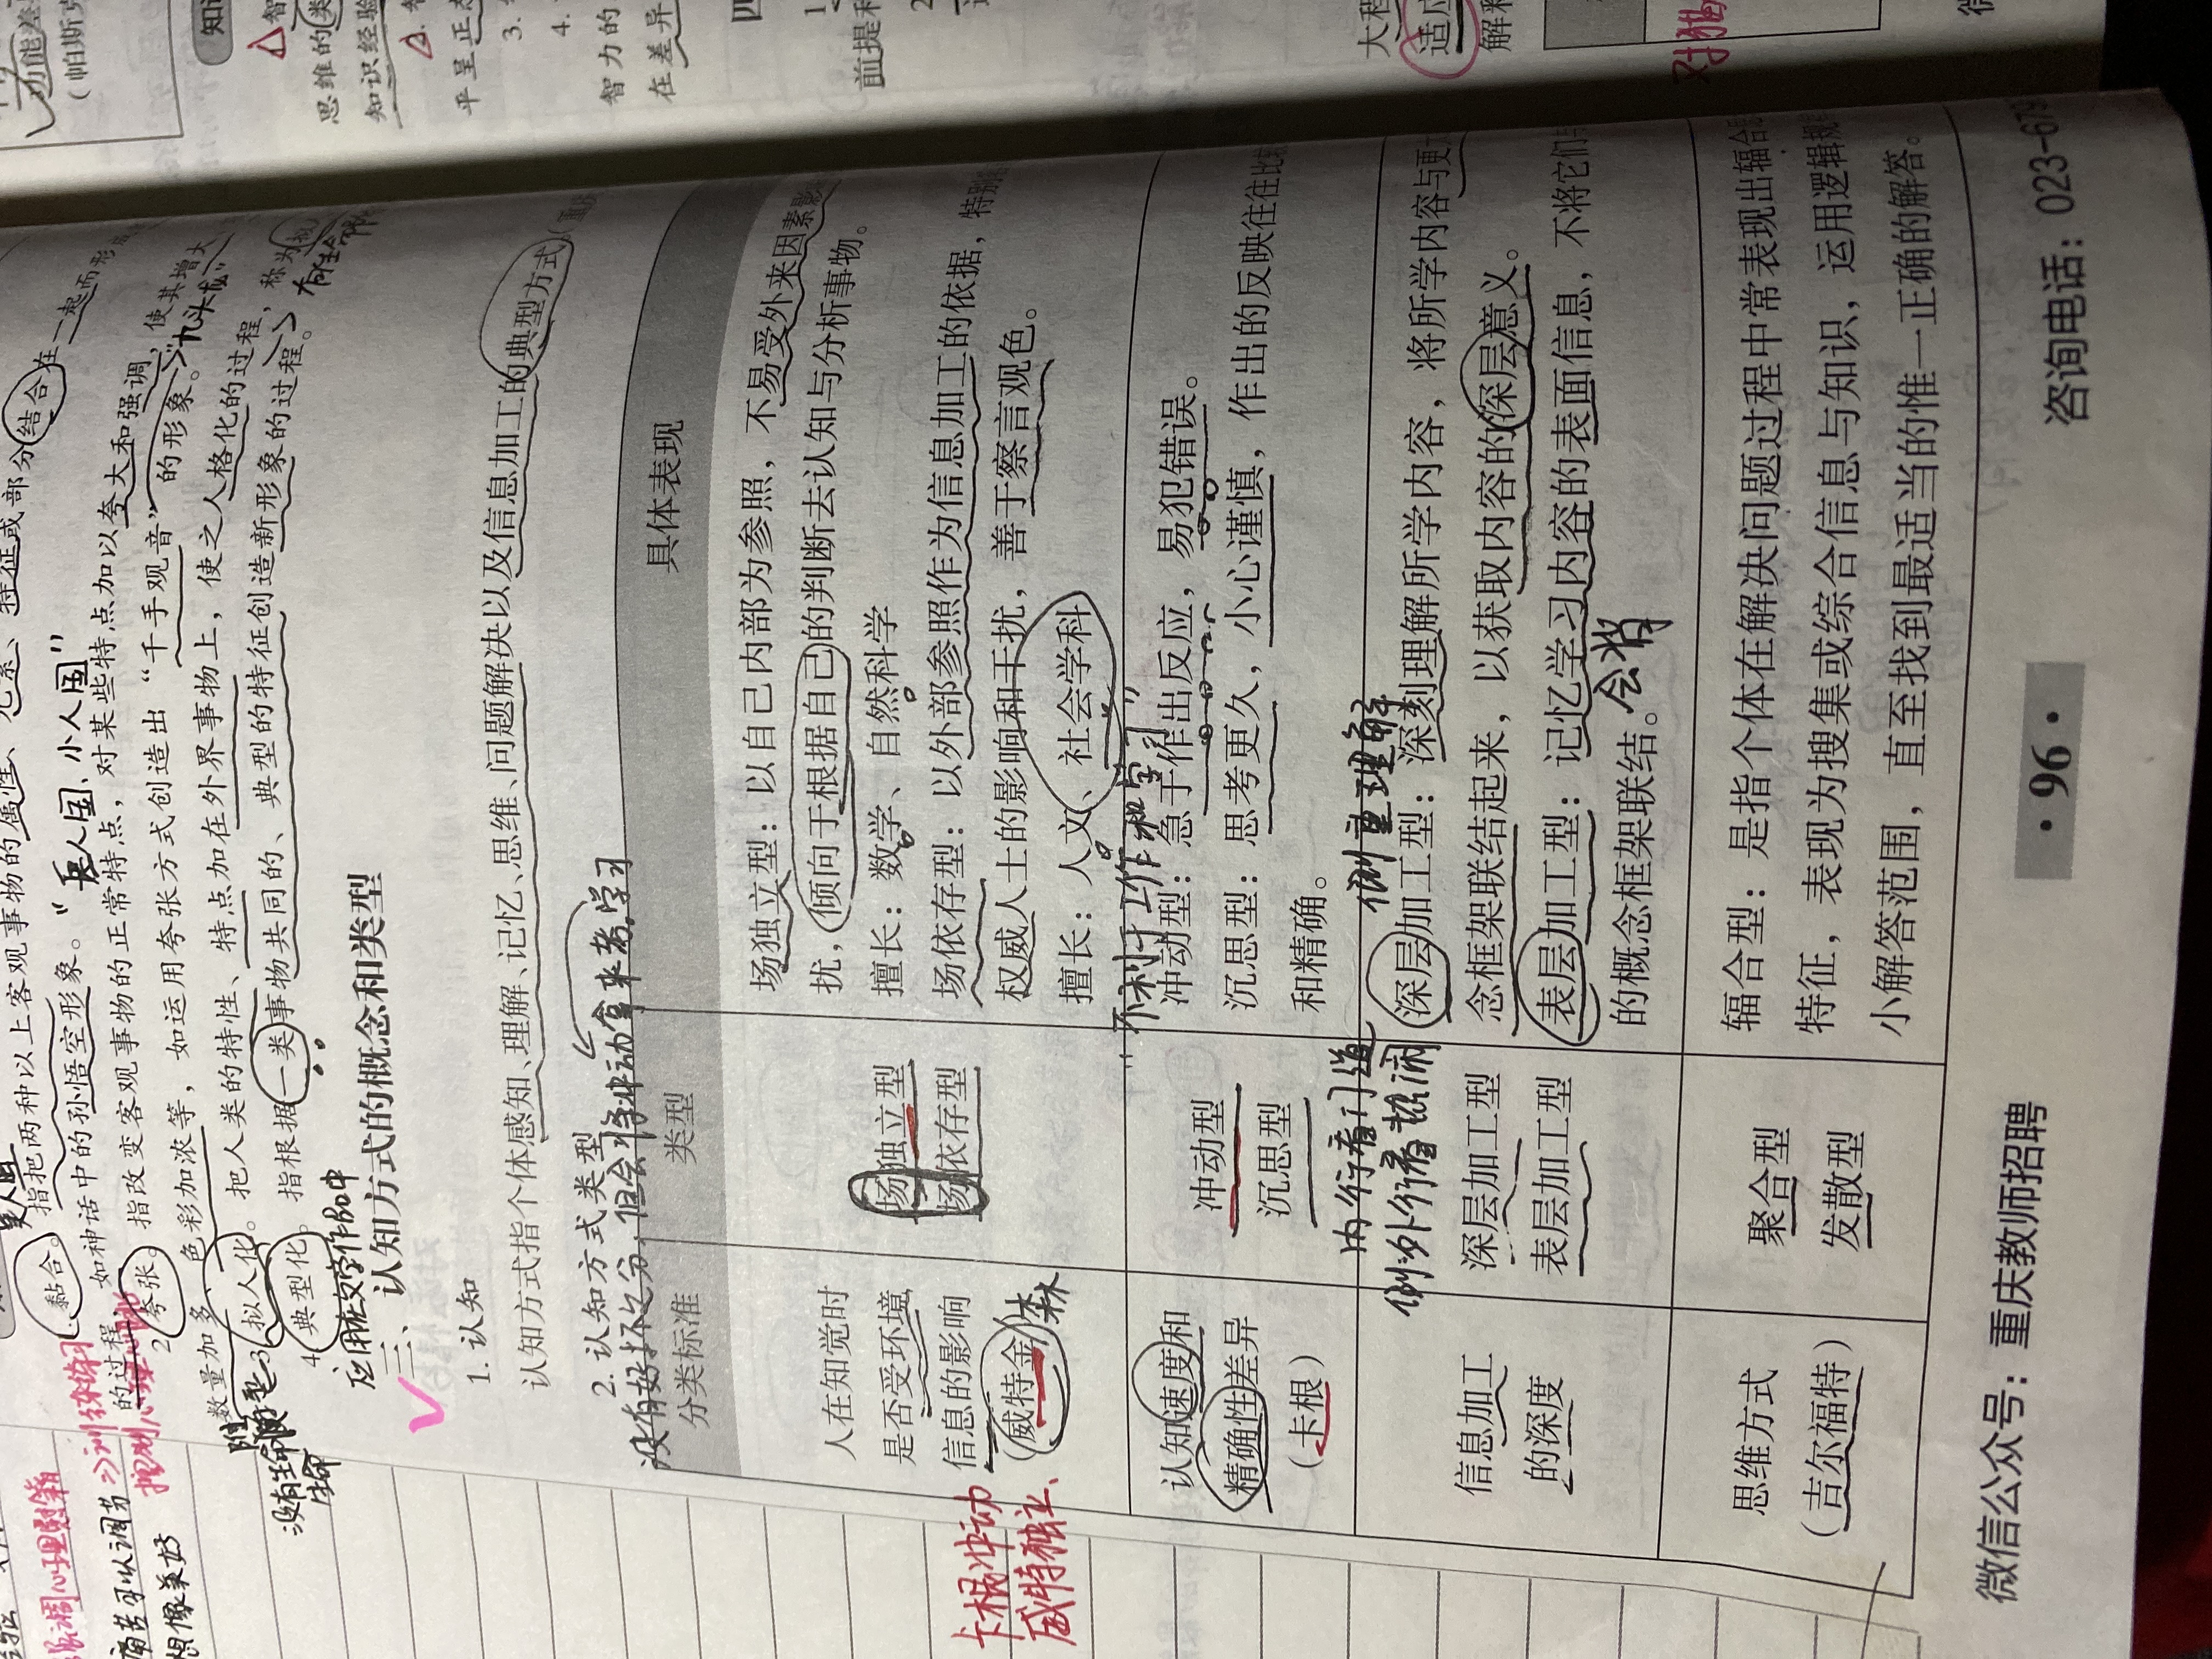 一起而形
结合在
1.黏合。指把两种以上客观事物的属性、元素、特征或部分
的过程。如神话中的孙悟空形象。“巨人国、小人国”
2.夸张。指改变客观事物的正常特点，对某些特点加以夸大和强调，使其增大
数量加多、色彩加浓等，如运用夸张方式创造出“千手观音”的形象。“九头龙”
3.拟人化。把人类的特性、特点加在外界事物上，使之人格化的过程，称为
4.典型化。指根据一类事物共同的、典型的特征创造新形象的过程。
应用在文学作品中
没有生命
三、认知方式的概念和类型
1.认知
认知方式指个体感知、理解、记忆、思维、问题解决以及信息加工的典型方式
2.认知方式类型
没有好坏之分,但会将冲动拿来考学习
分类标准
类型
具体表现
人在知觉时
是否受环境
信息的影响
（威特金）
场独立型
场依存型
场独立型：以自己内部为参照，不易受外来因素影
扰，倾向于根据自己的判断去认知与分析事物。
擅长：数学、自然科学
场依存型：以外部参照作为信息加工的依据，特别
权威人士的影响和干扰，善于察言观色。
擅长：人文、社会学科
卡根冲动
威特独立、
不利于工作和学习”
认知速度和
精确性差异
（卡根）
冲动型
沉思型
冲动型：急于作出反应，易犯错误。
沉思型：思考更久，小心谨慎，作出的反映往往比较
和精确。
内行看门道
外行看热闹
侧重理解
信息加工
的深度
深层加工型
表层加工型
深层加工型：深刻理解所学内容，将所学内容与更
念框架联结起来，以获取内容的深层意义。
表层加工型：记忆学习内容的表面信息，不将它们
的概念框架联结。会背
思维方式
（吉尔福特）
聚合型
发散型
辐合型：是指个体在解决问题过程中常表现出辐合
特征，表现为搜集或综合信息与知识，运用逻辑规
小解答范围，直至找到最适当的惟一正确的解答。
微信公众号：重庆教师招聘
·96·
咨询电话：023-679
功能差
（帕斯克
知识
思维的类
知识经验
平呈正态
3.
4.
智力的
在差异
四
前提和
大程
适应
解释
痛苦可以调节
想像美好